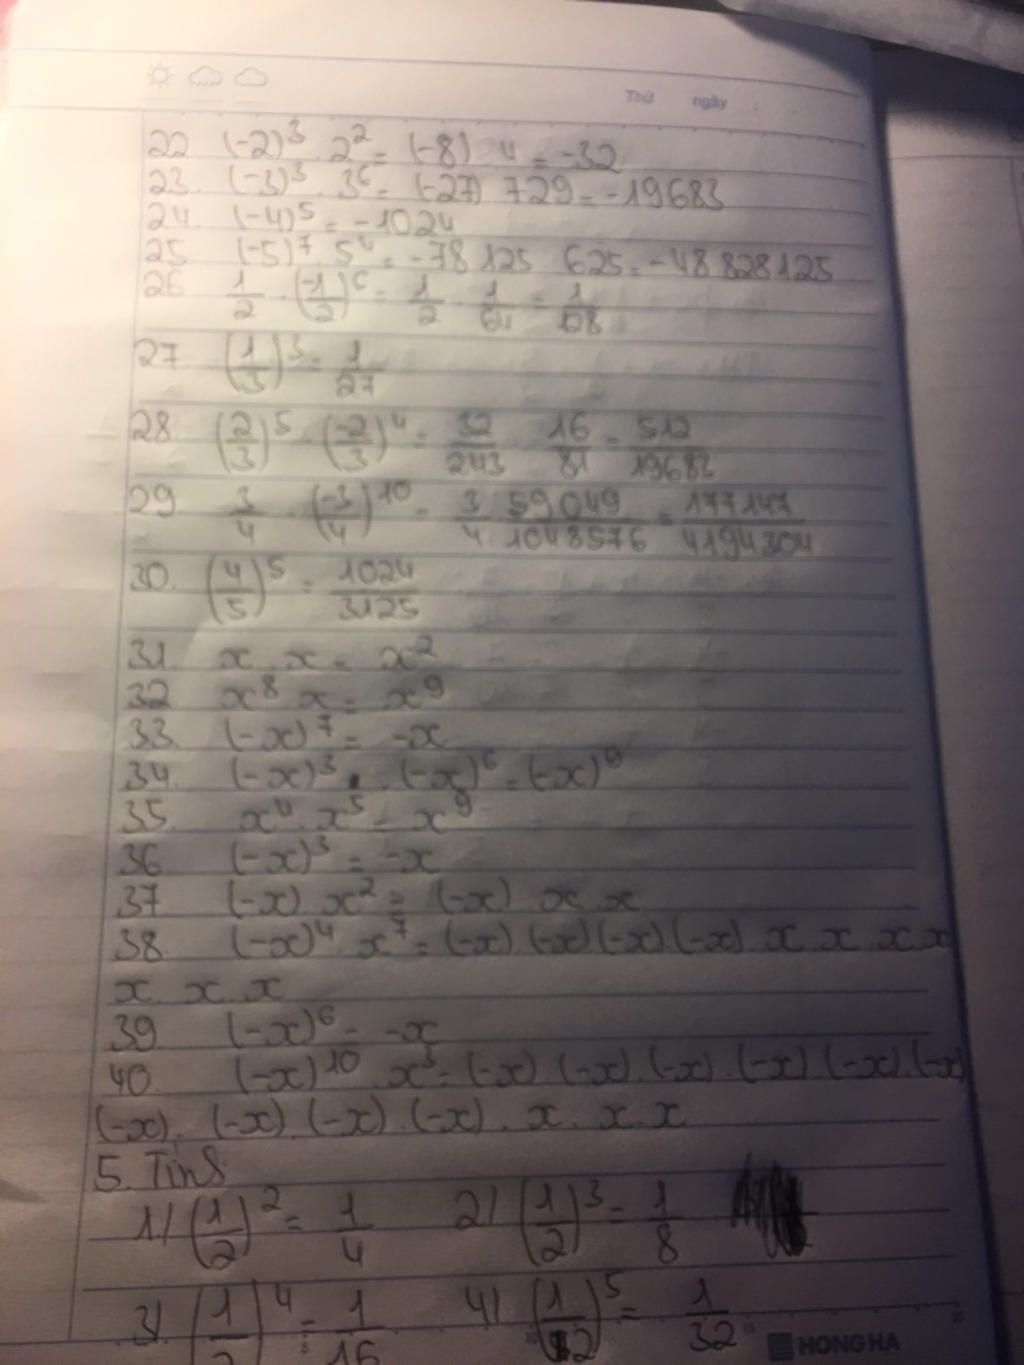 Thứ ngày
22 (-2)³ . 2² = (-8) . 4 = -32
23. (-3)³ . 3⁶ = (-27) 729 = -19683
24. (-4)⁵ = -1024
25 (-5)⁷ . 5⁴ = -78 125 . 625 = -48 828 125
26 1/2 . (-1/2)⁶ = 1/2 . 1/64 = 1/128
27 (1/3)³ = 1/27
28. (2/3)⁵ . (-2/3)⁴ = 32/243 . 16/81 = 512/19683
29 3/4 . (-3/4)¹⁰ = 3/4 . 59049/1048576 = 177147/4194304
30. (4/5)⁵ = 1024/3125
31 x . x = x²
32 x⁸ . x = x⁹
33. (-x)⁷ = -x
34. (-x)³ . (-x)⁶ = (-x)⁹
35 x⁴ . x⁵ = x⁹
36 (-x)³ = -x
37 (-x) . x² = (-x) . x . x
38 (-x)⁴ . x⁷ = (-x) (-x) (-x) (-x) . x . x . x . x
x . x . x
39 (-x)⁶ = -x
40. (-x)¹⁰ . x³ = (-x) (-x) . (-x) . (-x) (-x) . (-x)
(-x) . (-x) . (-x) . (-x) . x . x . x
5. Tính
1/ (1/2)² = 1/4 2/ (1/2)³ = 1/8
3/ (1/2)⁴ = 1/16 4/ (1/2)⁵ = 1/32
HONG HA